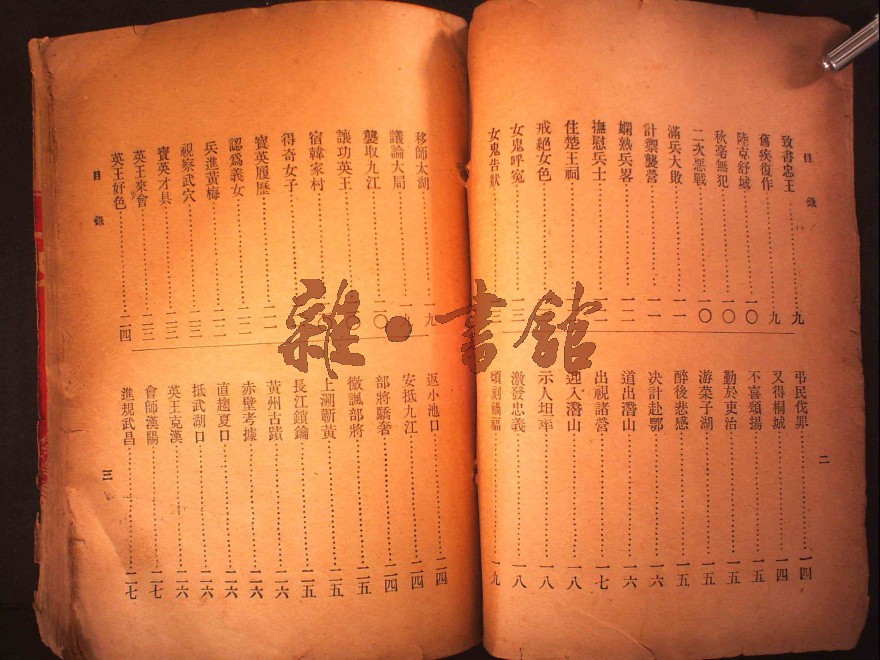 目錄
致書忠王……九
舊疾復作……九
陸克舒城……一〇
秋毫無犯……一〇
二次惡戰……一〇
滿兵大敗……一一
計禦襲營……一一
嫻熟兵畧……一二
撫慰兵士……
住楚王祠……
戒絕女色……
女鬼呼寃……一三
女鬼告狀……三
弔民伐罪……一四
又得桐城……一四
不喜頌揚……一五
勤於吏治……一五
游菜子湖……一五
醉後悲感……一五
決計赴鄂……一六
道出潛山……一六
出視諸營……一七
迎入潛山……一八
示人坦率……一八
激發忠義……一八
頃刻禍福……一九
二
移師太湖……一九
議論大局……一九
襲取九江……〇
讓功英王……〇
宿韓家村……
得奇女子……
寶英履歷……二一
認爲義女……二二
兵進黃梅……二二
視察武穴……二三
寶英才具……二三
英王來會……二三
英王好色……二四
返小池口……二四
安抵九江……二四
部將驕奢……二四
微諷部將……二五
上溯蘄黃……二五
長江鎖鑰……二五
黃州古蹟……二六
赤壁考據……二六
直趨夏口……二六
抵武湖口……二六
英王克漢……二六
會師漢陽……二七
進規武昌……二七
目錄
三
雜·書館